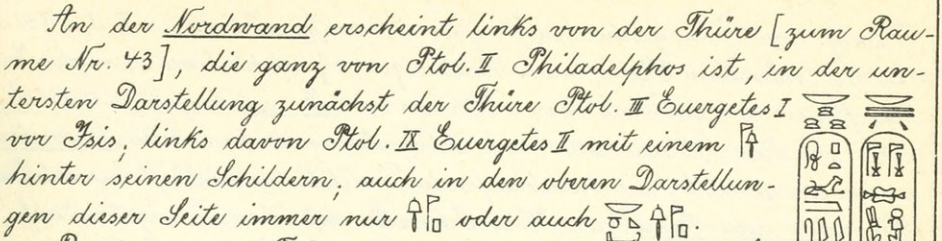 An der Nordwand erscheint links von der Thüre [zum Rau-
me Nr. 43], die ganz von Ptol. II Philadelphos ist, in der un-
tersten Darstellung zunächst der Thüre Ptol. III Euergetes I
vor Isis, links davon Ptol. IX Euergetes II mit einem
hinter seinen Schildern, auch in den oberen Darstellun-
gen dieser Seite immer nur oder auch .